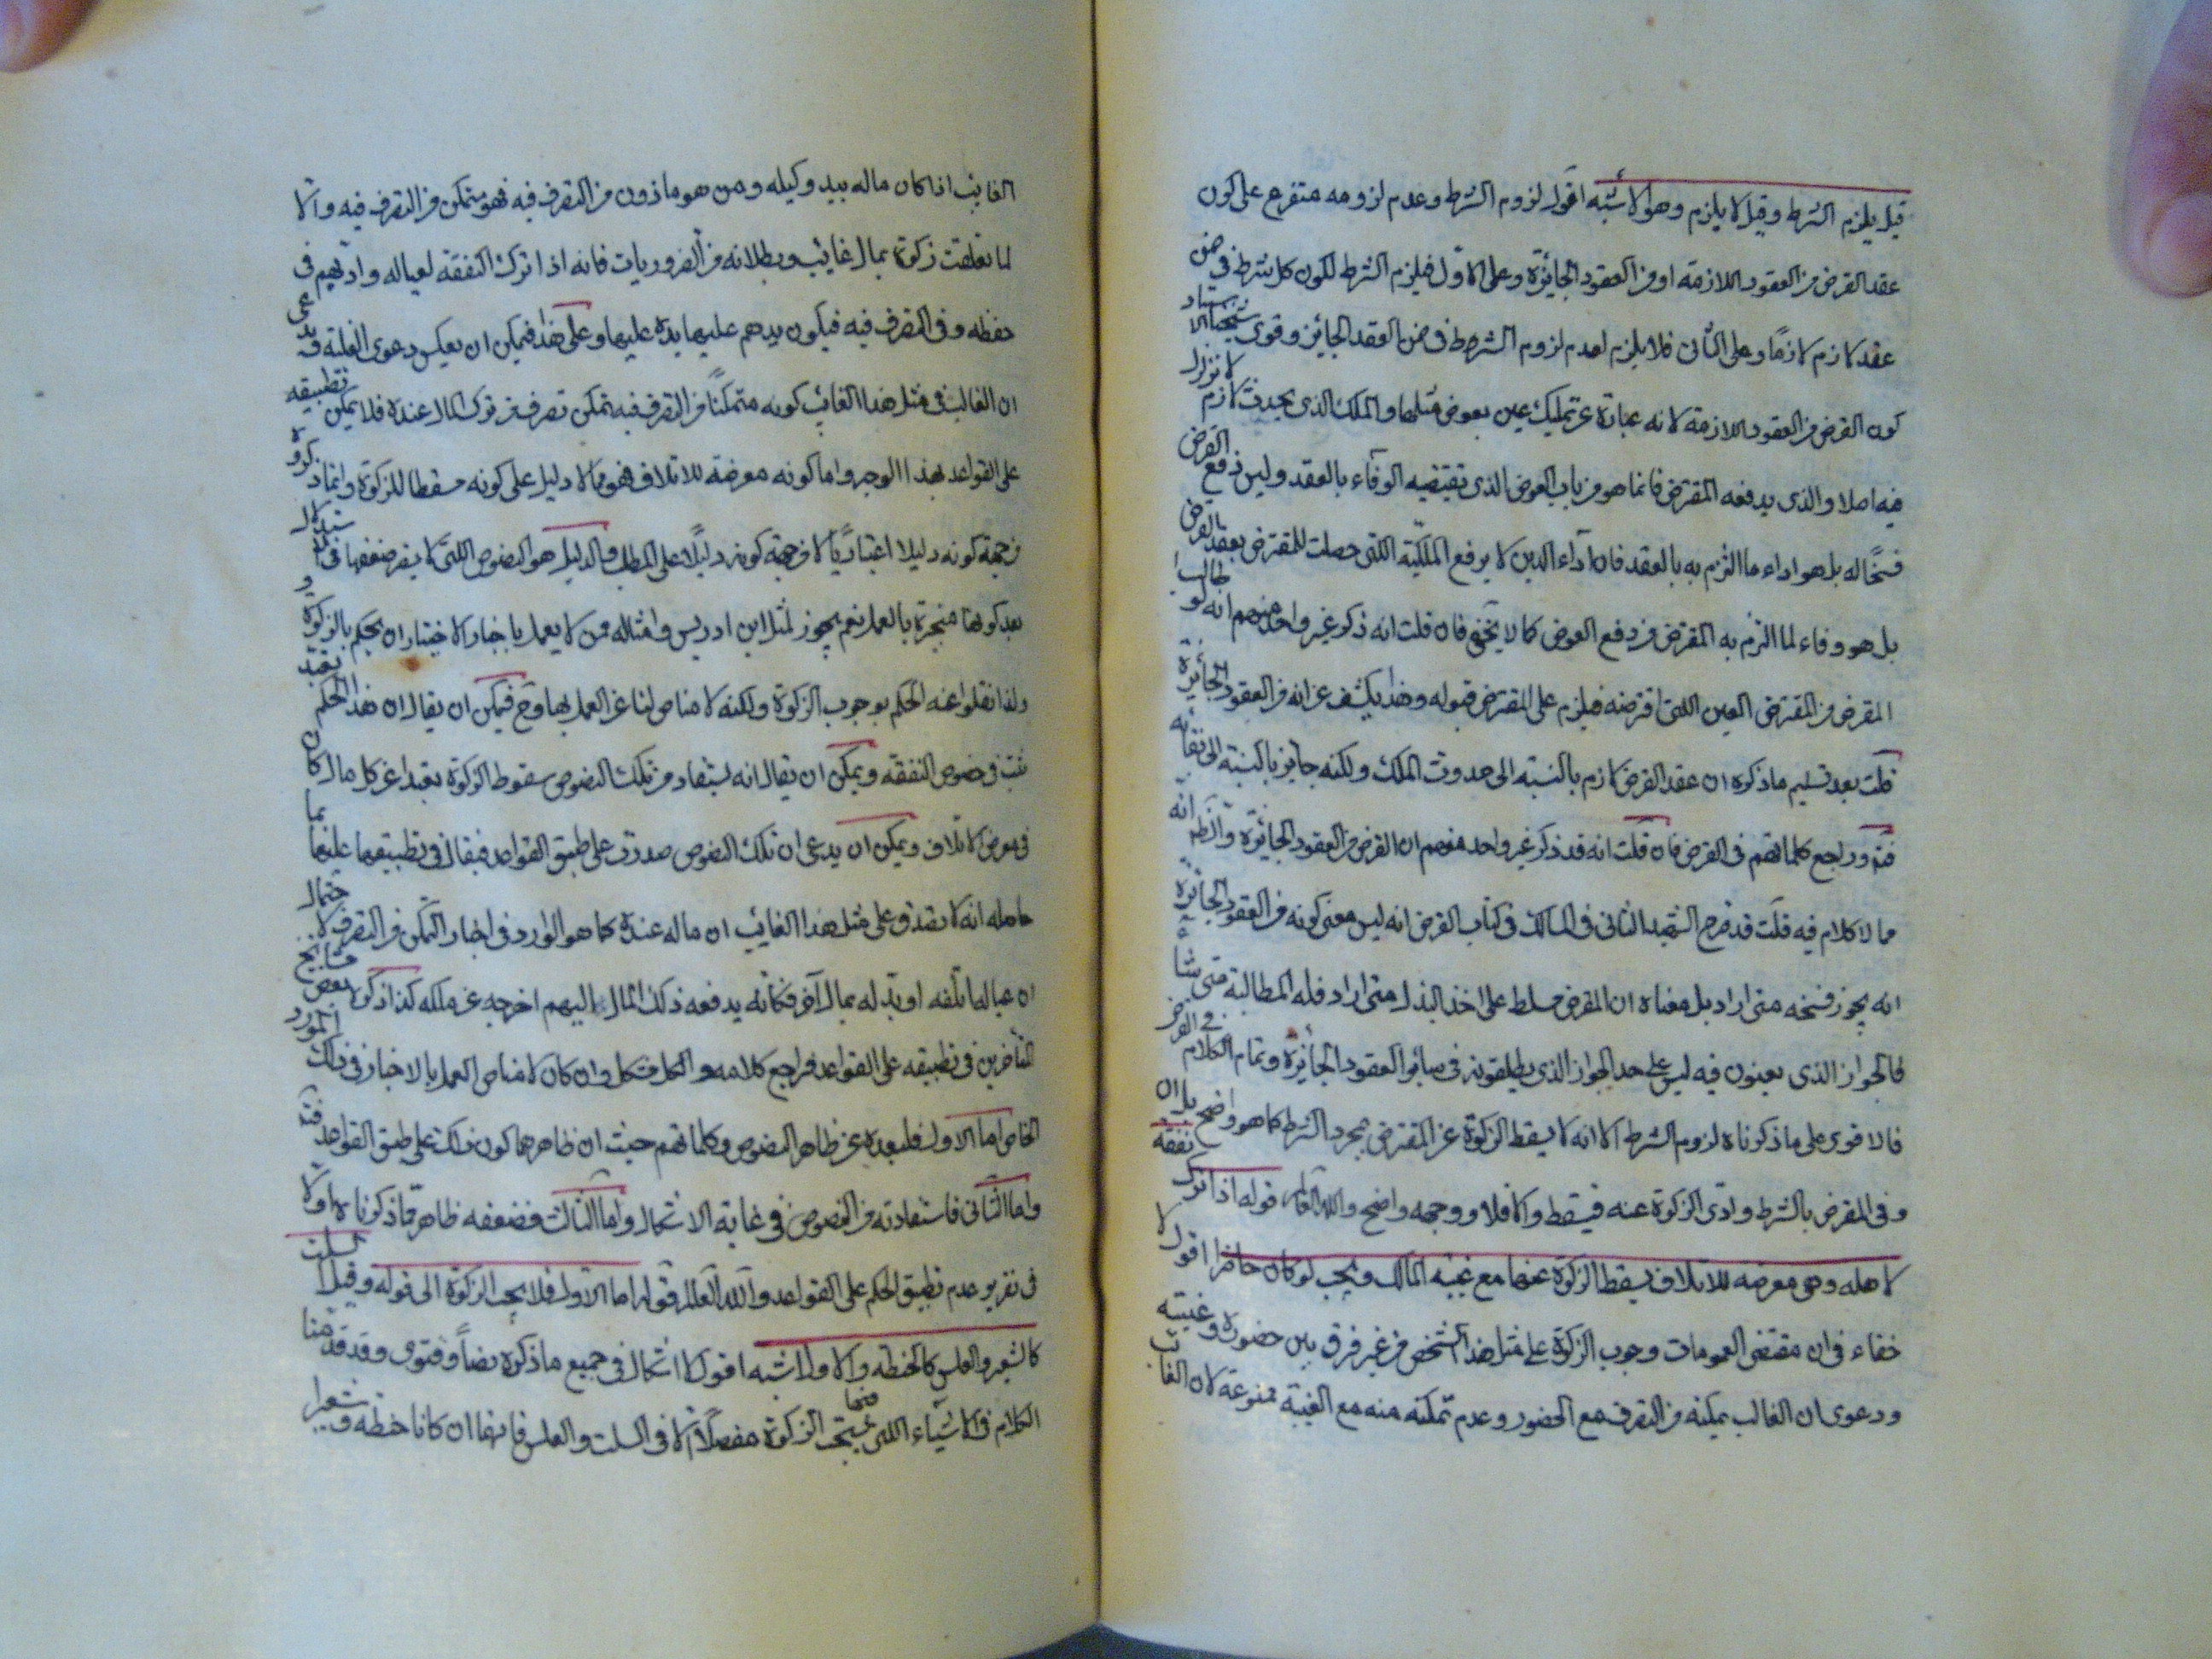 قيل يلزم الشرط وقيل لا يلزم وهو الاشبه اقول لزوم الشرط وعدم لزومه متفرع على كون
عقد القرض من العقود اللازمة او من العقود الجائزة وعلى الاول فيلزم الشرط لكون كل شرط في ضمن
عقد لازم لازما وعلى الثانى فلا يلزم لعدم لزوم الشرط في ضمن العقد الجايز وقوى
كون القرض من العقود اللازمة لانه عبارة عن تمليك عين بعوض مثلها والملك الذى يحدث لازم لا تزلزل
فيه اصلا والذى يدفعه المقترض فانما هو من باب العوض الذى تقتضيه الوفآء بالعقد وليس دفع القرض
فسخًا له بل هو اداء ما التزم به بالعقد فان آداء الدين لا يرفع الملكيّة اللتى حصلت للمقترض بعقد القرض
بل هو وفاء لما التزم به المقترض من دفع العوض كما لا يخفى فان قلت انه ذكر غير واحد منهم انه لو طالب
المقرض من المقترض العين اللتى اقترضه فيلزم على المقترض قبوله وهذا يكشف عن انه من العقود الجائزة
قلت بعد تسليم ما ذكروه ان عقد القرض لازم بالنسبة الى حدوث الملك ولكنه جايز بالنسبة الى بقائه
فتم وراجع كلماتهم فى القرض فان قلت انه قد ذكر غير واحد منهم ان القرض من العقود الجائزة والظ انه
مما لا كلام فيه قلت قد صرح الشهيد الثانى فى المسالك فى كتاب القرض انه ليس معنى كونه من العقود الجائزة
انه يجوز فسخه متى اراد بل معناه ان المقرض مسلط على اخذ البدل متى اراد فله المطالبة متى شآء
فالجواز الذى يعنون فيه ليس على حد الجواز الذى يطلقونه فى سائر العقود الجائزة وتمام الكلام في القرض
فالاقوى على ما ذكرناه لزوم الشرط الا انه لا يسقط الزكوة عن المقترض بمجرد الشرط كما هو واضح بل ان
وفى المقرض بالشرط وادّى الزكوة عنه فيسقط والا فلا ووجهه واضح والله العالم قوله اذا ترك نفقة
لاهله وهى معرضه للاتلاف يسقط الزكوة عنها مع غيبة المالك ويجب لو كان حاضرا اقول لا
خفاء فى ان مقتضى العمومات وجوب الزكوة على مثل هذا الشخص من غير فرق بين حضوره وغيبته
ودعوى ان الغالب يمكنه من التصرف مع الحضور وعدم تمكنه منه مع الغيبة ممنوعة لان الغائب
الغايب اذا كان ماله بيد وكيله ومن هو ماذون من التصرف فيه فهو متمكن من التصرف فيه والّا
لما تعلقت زكوة بمال غائب وبطلانه من الضروريات فانه اذا ترك النفقة لعياله واذنهم فى
حفظه وفى التصرف فيه فيكون يدهم عليها يده عليها وعلى هذا فيمكن ان يعكس دعوى الغلبة
ان الغالب فى مثل هذا الغائب كونه متمكنًا من التصرف فيه بتمكن تصرف من ترك المال عنده فلا يمكن تطبيقه
على القواعد بهذا الوجه واما كونه معرضة للاتلاف فهو مما لا دليل على كونه مسقطا للزكوة وانما ذكروه
من جهة كونه دليلا اعتباريًا لا من جهة كونه دليلًا على المطلب والدليل هو النصوص اللتى لا يضر ضعفها
بعد كونها منجبرة بالعمل نعم يجوز لمثل ابن ادريس وامثاله ممن لا يعمل باخبار الاختيار ان يحكم بالزكوة
ولذا نقلوا عنه الحكم بوجوب الزكوة ولكنه لا مناص لنا عن العمل بها وح فيمكن ان يقال ان هذا الحكم
ثبت فى خصوص النفقه ويمكن ان يقال انه يستفاد من تلك النصوص سقوط الزكوة تعبدا عن كل مال كان
فى معرض الاتلاف ويمكن ان يدعى ان تلك النصوص صدرت على طبق القواعد فيقال فى تطبيقها عليها بما
حاصله انه لا يصدق على مثل هذا الغائب ان ماله عنده كما هو الوارد فى اخبار التمكن من التصرف لاحتمال
ان عياله اتلفه او بدّله بمال آخر فكانّه بدفعه ذلك المال اليهم اخرجه عن ملكه كذا ذكره بعض مشايخ
المتأخرين فى تطبيقه على القواعد فراجع كلامه والكل مشكل وان كان لا مناص العمل بالاخبار فى ذلك المورد
الخاص اما الاول فلبعده عن ظاهر النصوص وكلماتهم حيث ان ظاهرهما كون ذلك على طبق القواعد فت
واما الثانى فاستفادته من النصوص فى غاية الاشكال واما الثالث فضعفه ظاهر مما ذكرناه اولا
فى تقرير عدم تطبيق الحكم على القواعد والله العالم قوله اما الاول فلا يجب الزكوة الى قوله وقيل السلت
كالشعير والعلس كالحنطه والاول اشبه اقول لا اشكال فى جميع ما ذكره نصاً وفتوى وقد قدّمنا
الكلام فى الاشيآء اللتى يجب فيها الزكوة مفصلًا الا فى السلت والعلس فانهما ان كانا حنطه وشعيرا